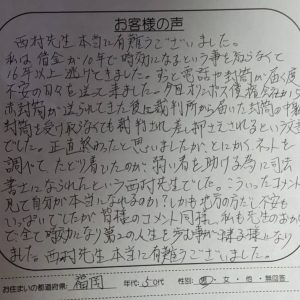 お客様の声
西村先生本当に有難うございました。
私は借金が10年で時効になるという事も知らなくて
16年以上逃げてきました。ずっと電話や封筒が届く度
不安の日々を送って来ました。今日オリンポス債権会社から
赤封筒が送られてきた後に裁判所から届いた封筒の中身
封筒を受け取らなくても裁判され差し押さえされるという
でした。正直終わったと思いましたが、とにかく、ネットを
調べて、たどり着いたのが、弱い者を助ける為に司法
書士になられたという西村先生でした。こういったコメント
見て自分が本当になれるのか?しかも地方の方だし不安も
いっぱいでしたが皆様のコメント同様、私も先生のおかげ
で全て時効になり第2の人生を歩む事が出来る様になり
ました。西村先生本当に有難うございました。
お住まいの都道府県: 福岡 年代: 50代 性別: 男・女・他・無回答